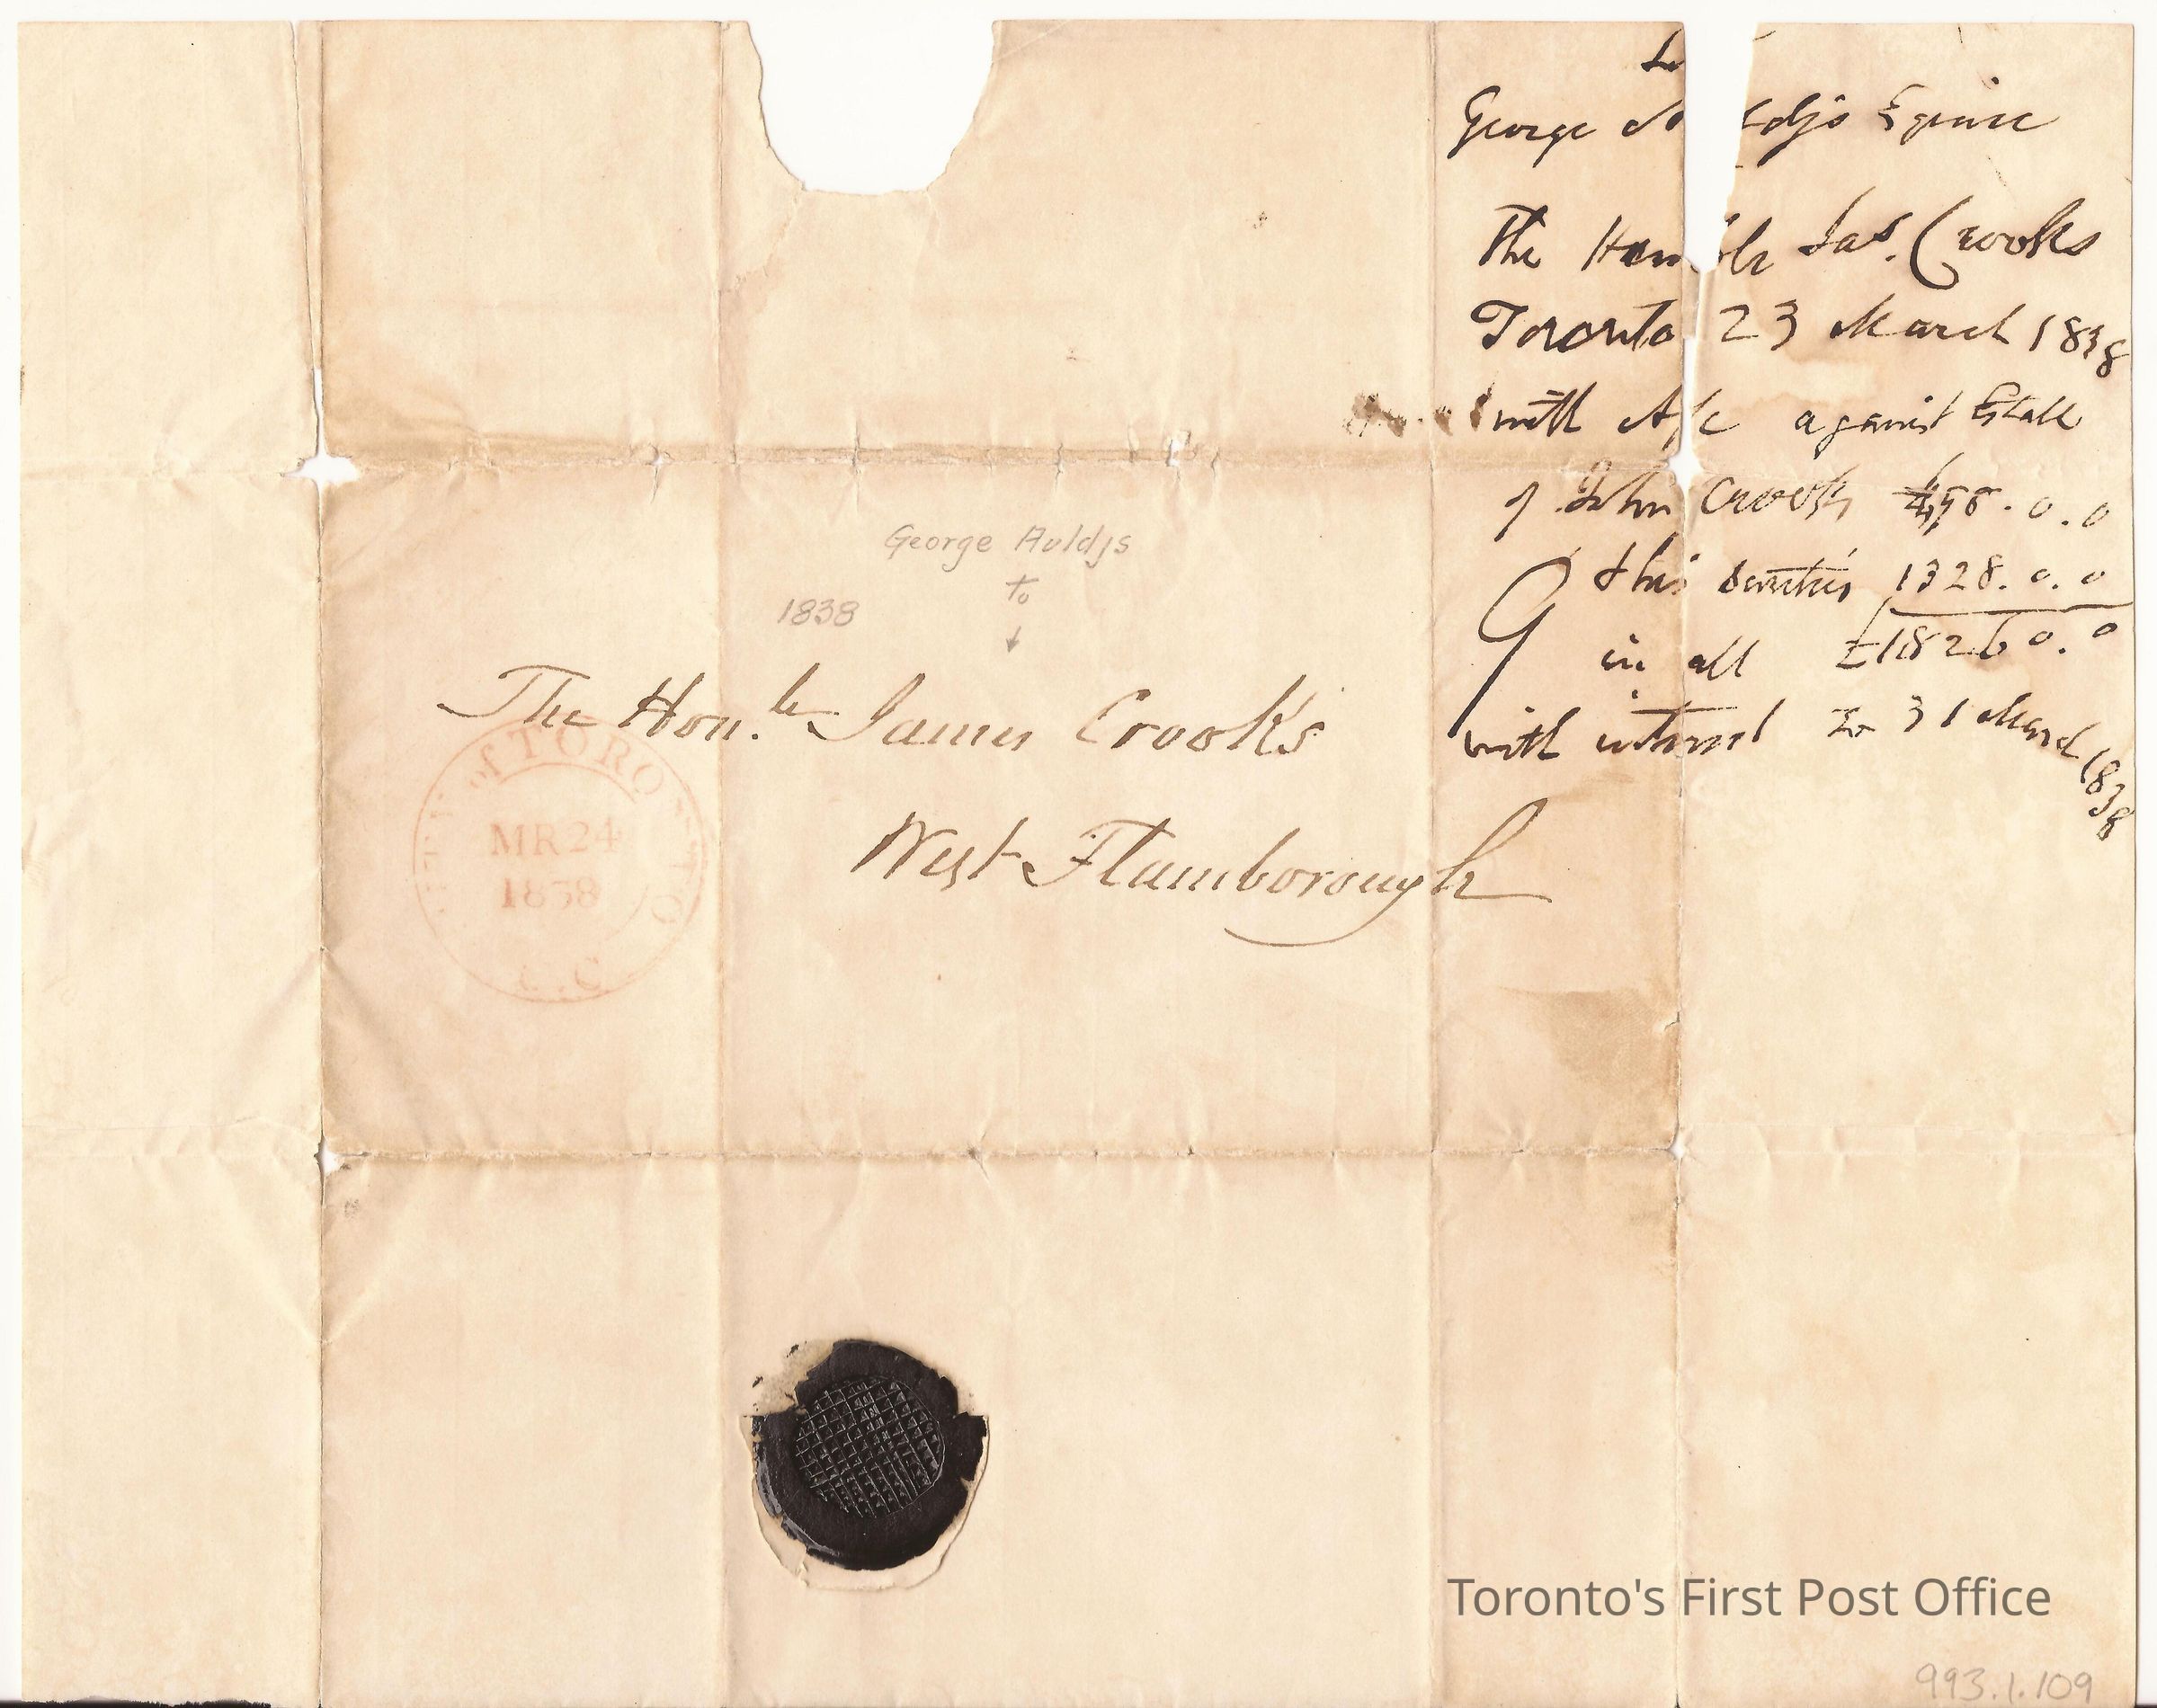 George edjs Esquire
The Hon ble Jas. Crooks
Toronto 23 March 1838
with A/c against Estate
of John Crooks 498.0.0
this 1328.0.0
in all £1826 0.0
with interest to 31 March 1838
George Auldjs
to
1838
The Hon.le James Crooks
West Flamborough
CITY of TORONTO
MR 24
1838
U.C
Toronto's First Post Office
993.1.109